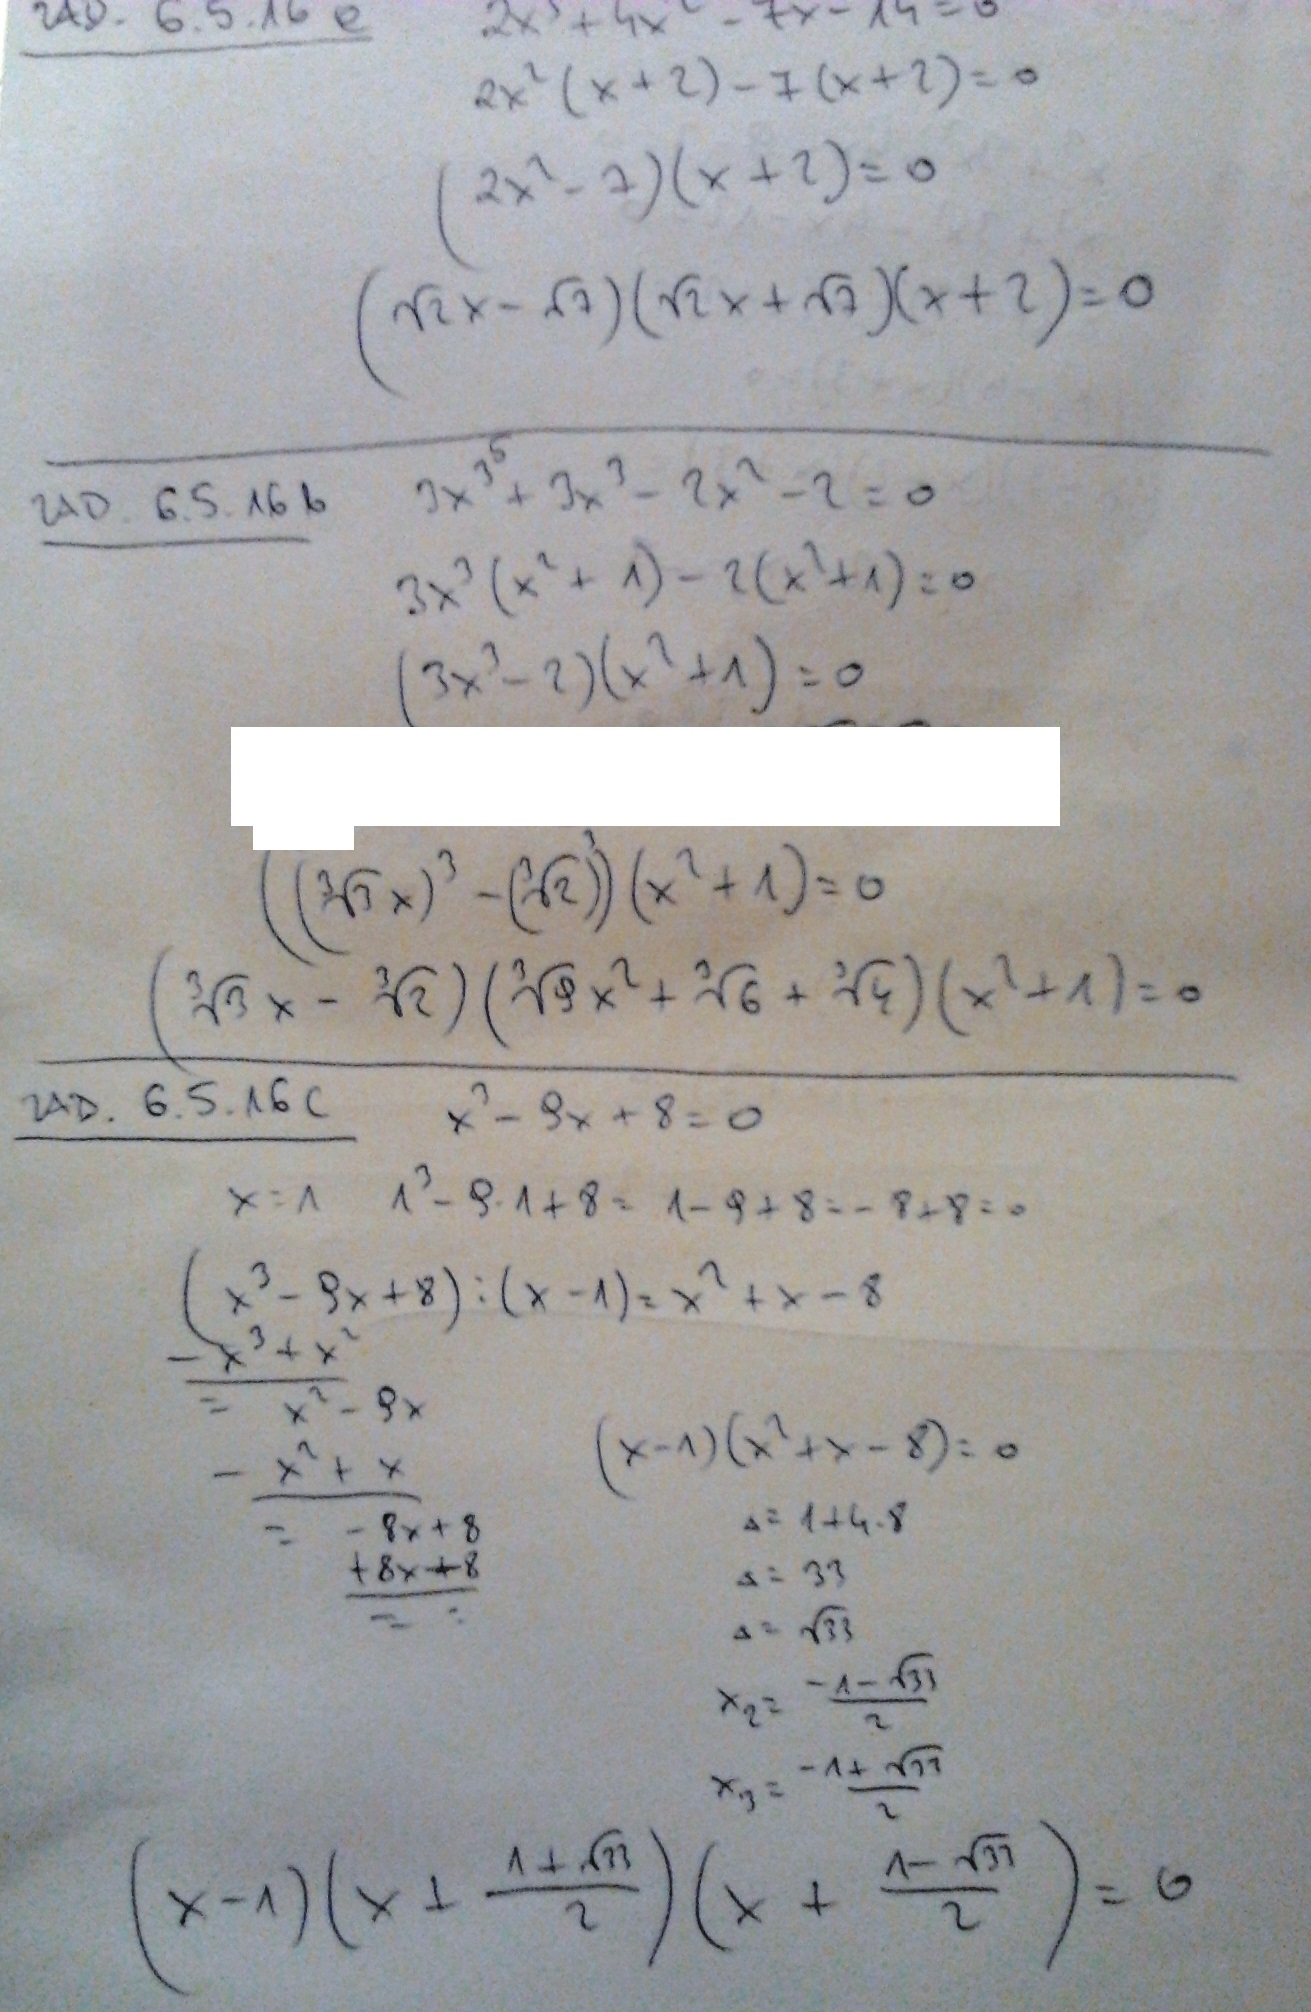 ZAD. 6.5.16 a 2x³ + 4x² - 7x - 14 = 0
2x² (x + 2) - 7 (x + 2) = 0
(2x² - 7)(x + 2) = 0
(√2x - √7)(√2x + √7)(x + 2) = 0
ZAD. 6.5.16 b 3x⁵ + 3x³ - 2x² - 2 = 0
3x³ (x² + 1) - 2(x² + 1) = 0
(3x³ - 2)(x² + 1) = 0
((∛3 x)³ - (∛2)³)(x² + 1) = 0
(∛3 x - ∛2)(∛9 x² + ∛6 + ∛4)(x² + 1) = 0
ZAD. 6.5.16 c x³ - 9x + 8 = 0
x = 1 1³ - 9·1 + 8 = 1 - 9 + 8 = - 8 + 8 = 0
(x³ - 9x + 8) : (x - 1) = x² + x - 8
- x³ + x²
= x² - 9x
- x² + x
= - 8x + 8
+ 8x + 8
= =
(x - 1)(x² + x - 8) = 0
Δ = 1 + 4·8
Δ = 33
Δ = √33
x₂ = (-1 - √33)/2
x₃ = (-1 + √33)/2
(x - 1)(x + (1 + √33)/2)(x + (1 - √33)/2) = 0